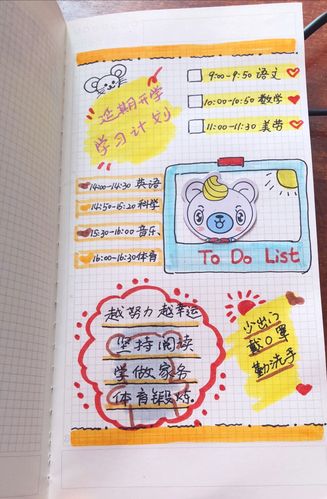 延期开学
学习计划
9:00-9:50 语文
10:00-10:50 数学
11:00-11:30 美劳
14:00-14:30 英语
14:50-15:20 科学
15:30-16:00 音乐
16:00-16:30 体育
To Do List
越努力 越幸运
坚持阅读
学做家务
体育锻炼.
少出门
戴口罩
勤洗手